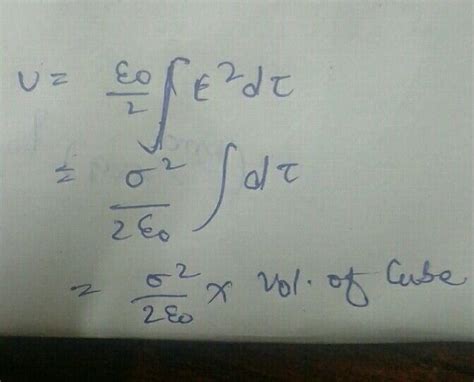 U = ε0/2 ∫ E² dτ
= σ²/2ε0 ∫ dτ
= σ²/2ε0 × Vol. of Cube